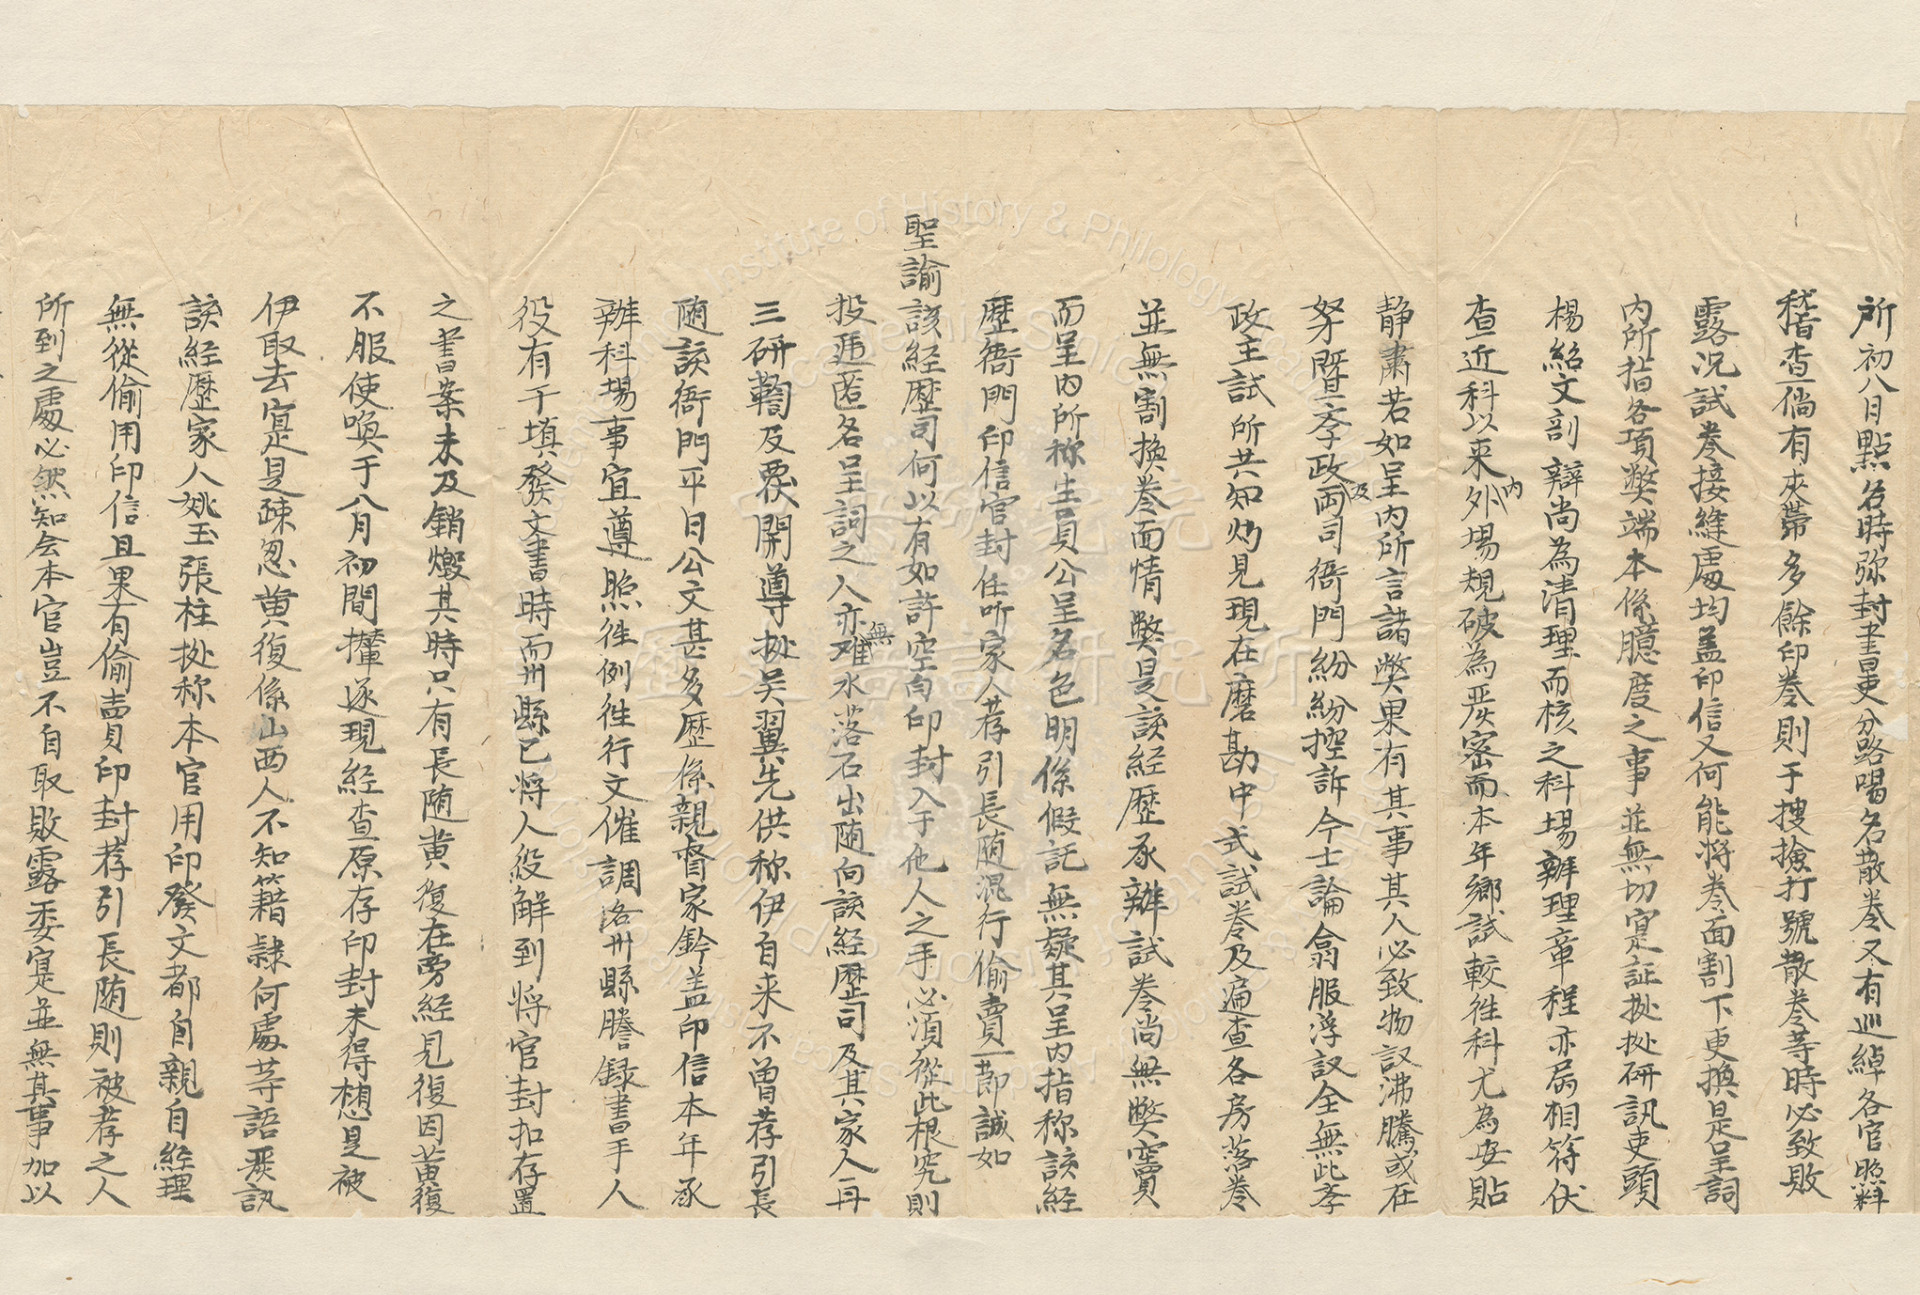 所初八日點名時弥封書吏分路唱名散卷又有巡綽各官照料
稽查一倘有夾帶多餘印卷則于搜撿打號散卷等時必致敗
露况試卷接縫處均盖印信又何能將卷面割下更換是呈詞
内所指各項獘端本係臆度之事並無切寔証㨿㨿研訊吏頭
楊紹文剖辯尚為清理而核之科場辦理章程亦属相符伏
查近科以来外内場規破為严密而本年鄉試較徃科尤為安貼
静肅若如呈内所言諸獘果有其事其人必致物議沸騰或在
孥暨孥政及両司衙門紛紛控訴今士論翕服浮議全無此孥
政主試所共知灼見現在磨勘中式試卷及遍查各房落卷
並無割換卷面情獘是該經歷承辦試卷尚無獘竇
而呈内所称生員公呈名色明係假託無疑其呈内指称該經
歷衙門印信官封任听家人荐引長随混行偷賣一節誠如
聖諭該經歷司何以有如許空白印封入于他人之手必須從此根究則
投逓匿名呈詞之人亦無难水落石出随向該經歷司及其家人再
三研鞫及覆開導㨿吴翼先供称伊自来不曾荐引長
随該衙門平日公文甚多歷係親督家鈐盖印信本年承
辦科場事宜遵照徃例徃行文催調各州縣謄録書手人
役有于填發文書時而州縣已將人役解到將官封扣存置
之書案未及銷燬其時只有長随黄復在旁経見復因黄復
不服使喚于八月初間攆逐現経查原存印封未得想是被
伊取去寔是疎忽黄復係山西人不知籍隸何處等語严訊
該經歷家人姚玉張柱㨿称本官用印發文都自親自經理
無從偷用印信且果有偷賣印封荐引長随則被荐之人
所到之處必然知会本官豈不自取敗露委寔並無其事加以